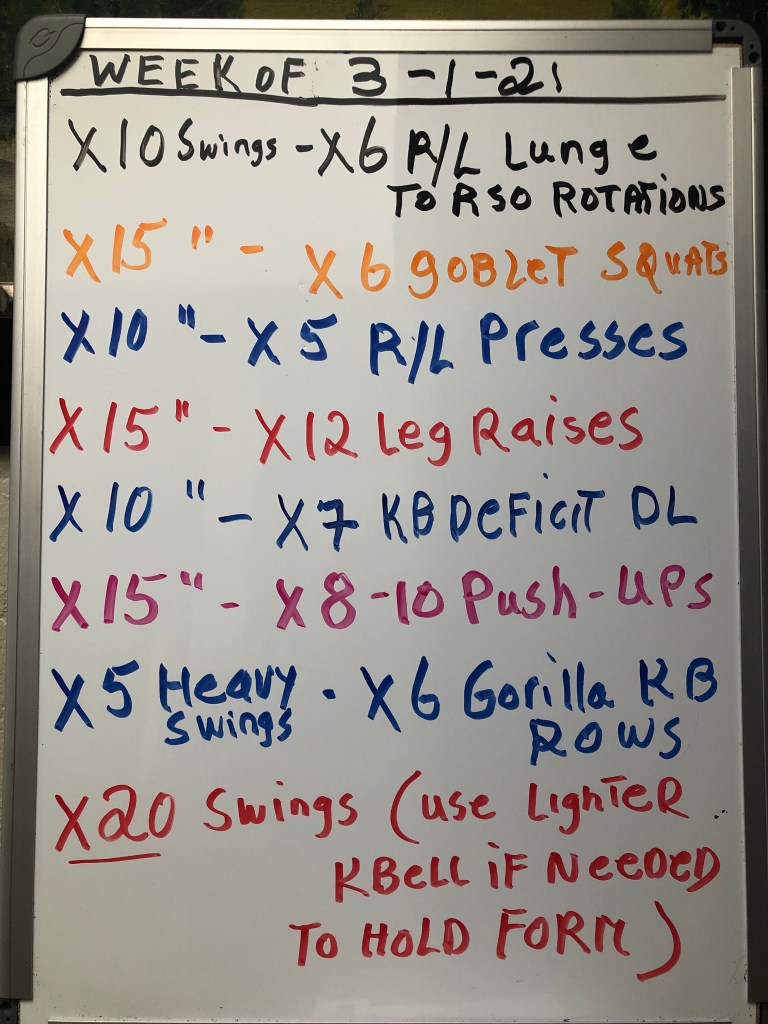 WEEK OF 3-1-21
X10 Swings - X6 R/L Lunge
TORSO ROTATIONS
X15 " - X6 gOBLET SQUATS
X10 " - X5 R/L Presses
X15 " - X12 Leg Raises
X10 " - X7 KB DeFiciT DL
X15 " - X8-10 Push-UPs
X5 Heavy - X6 Gorilla KB
Swings ROWS
X20 Swings (use LighTeR
KBeLL iF NeeDeD
To HoLD FORM)